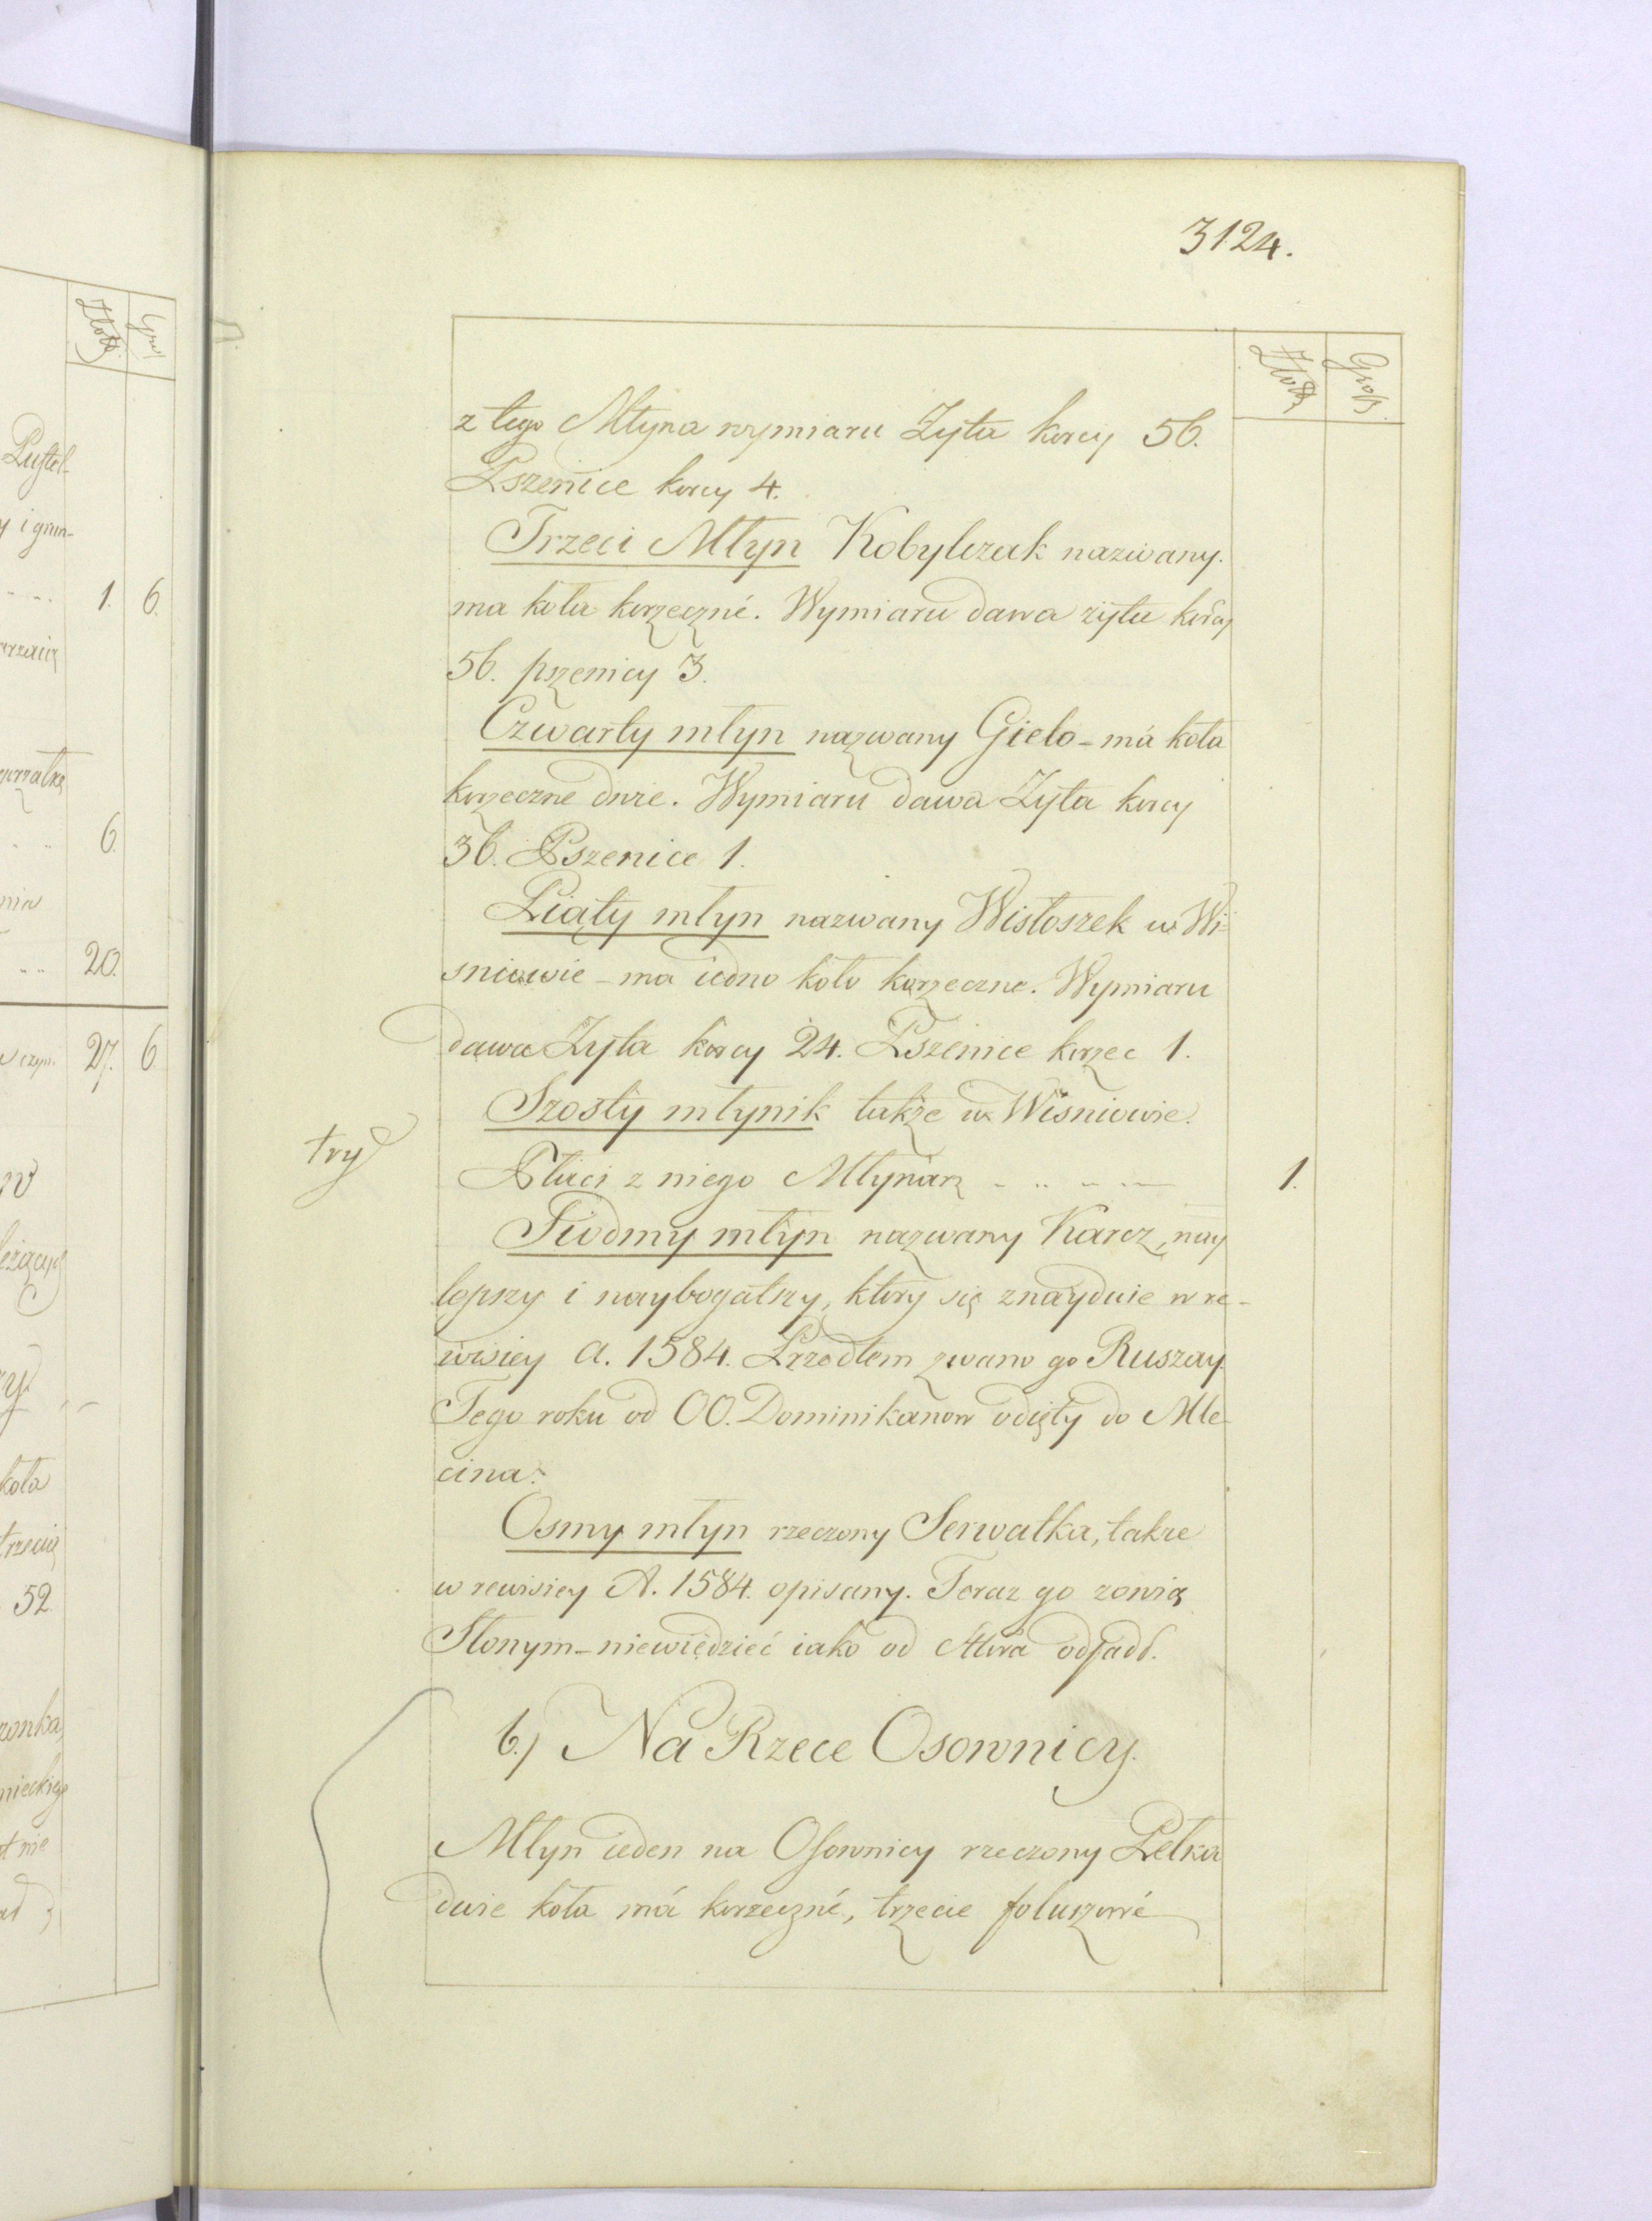 3124.
Złote Grosz
z tego Młyna wymiaru Zyta korcy 56.
Pszenice korcy 4.
Trzeci Młyn Kobylczak nazwany.
ma koła korzeczné. Wymiaru dawa zytu korcy
56. pszenicy 3.
Czwarty młyn nazwany Gielo - má koła
korzeczne dwie. Wymiaru dawa Zyta korcy
36. Pszenice 1.
Piąty młyn nazwany Wistoszek w Wi-
sniowie - ma iedno koło korzeczne. Wymiaru
dawa Zyta korcy 24. Pszenice korzec 1.
Szosty młynik także w Wisniowie.
try
Płaci z niego Młynarz - .. - .. — 1.
Siodmy młyn nazwany Karcz, nay
lepszy i naybogatszy, ktory się znayduie w re-
wisiey A. 1584. Przodtem zwano go Ruszay.
Tego roku od OO. Dominikanow odięty do Mle-
cina.
Osmy młyn rzeczony Serwatka, takze
w rewisiey A. 1584. opisany. Teraz go zowią
Słonym - niewiedzieć iako od odpadł.
b.) Na Rzece Osownicy.
Młyn ieden na Osownicy rzeczony Pełka
dwie koła má korzeczné, trzecie foluszowé
Złote Gros
Pustel-
y i grun-
- - .. 1. 6.
gorzałkę
.. .. 6.
nia
.. .. 20.
czyn. 27. 6.
koła
trzecią
52.